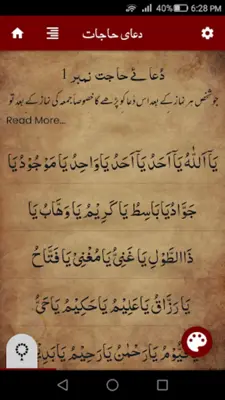 40% 6:28
دعای حاجات
دُعائے حاجت نمبر 1
جو شخص ہر نماز کے بعد اس دُعا کو پڑھے گا خصوصاً جمعہ کی نماز کے بعد تو
Read More...
يَا اَللّٰهُ يَا اَحَدُ يَا اَحَدُ يَا وَاحِدُ يَا مَوْجُوْدُ يَا
جَوَّادُ يَا بَاسِطُ يَا كَرِيْمُ يَا وَهَّابُ يَا
ذَاالطَّوْلِ يَا غَنِيُّ يَا مُغْنِيُ يَا فَتَّاحُ
يَا رَزَّاقُ يَا عَلِيْمُ يَا حَكِيْمُ يَا حَيُّ
يَا قَيُّوْمُ يَا رَحْمٰنُ يَا رَحِيْمُ يَا بَدِيْعَ